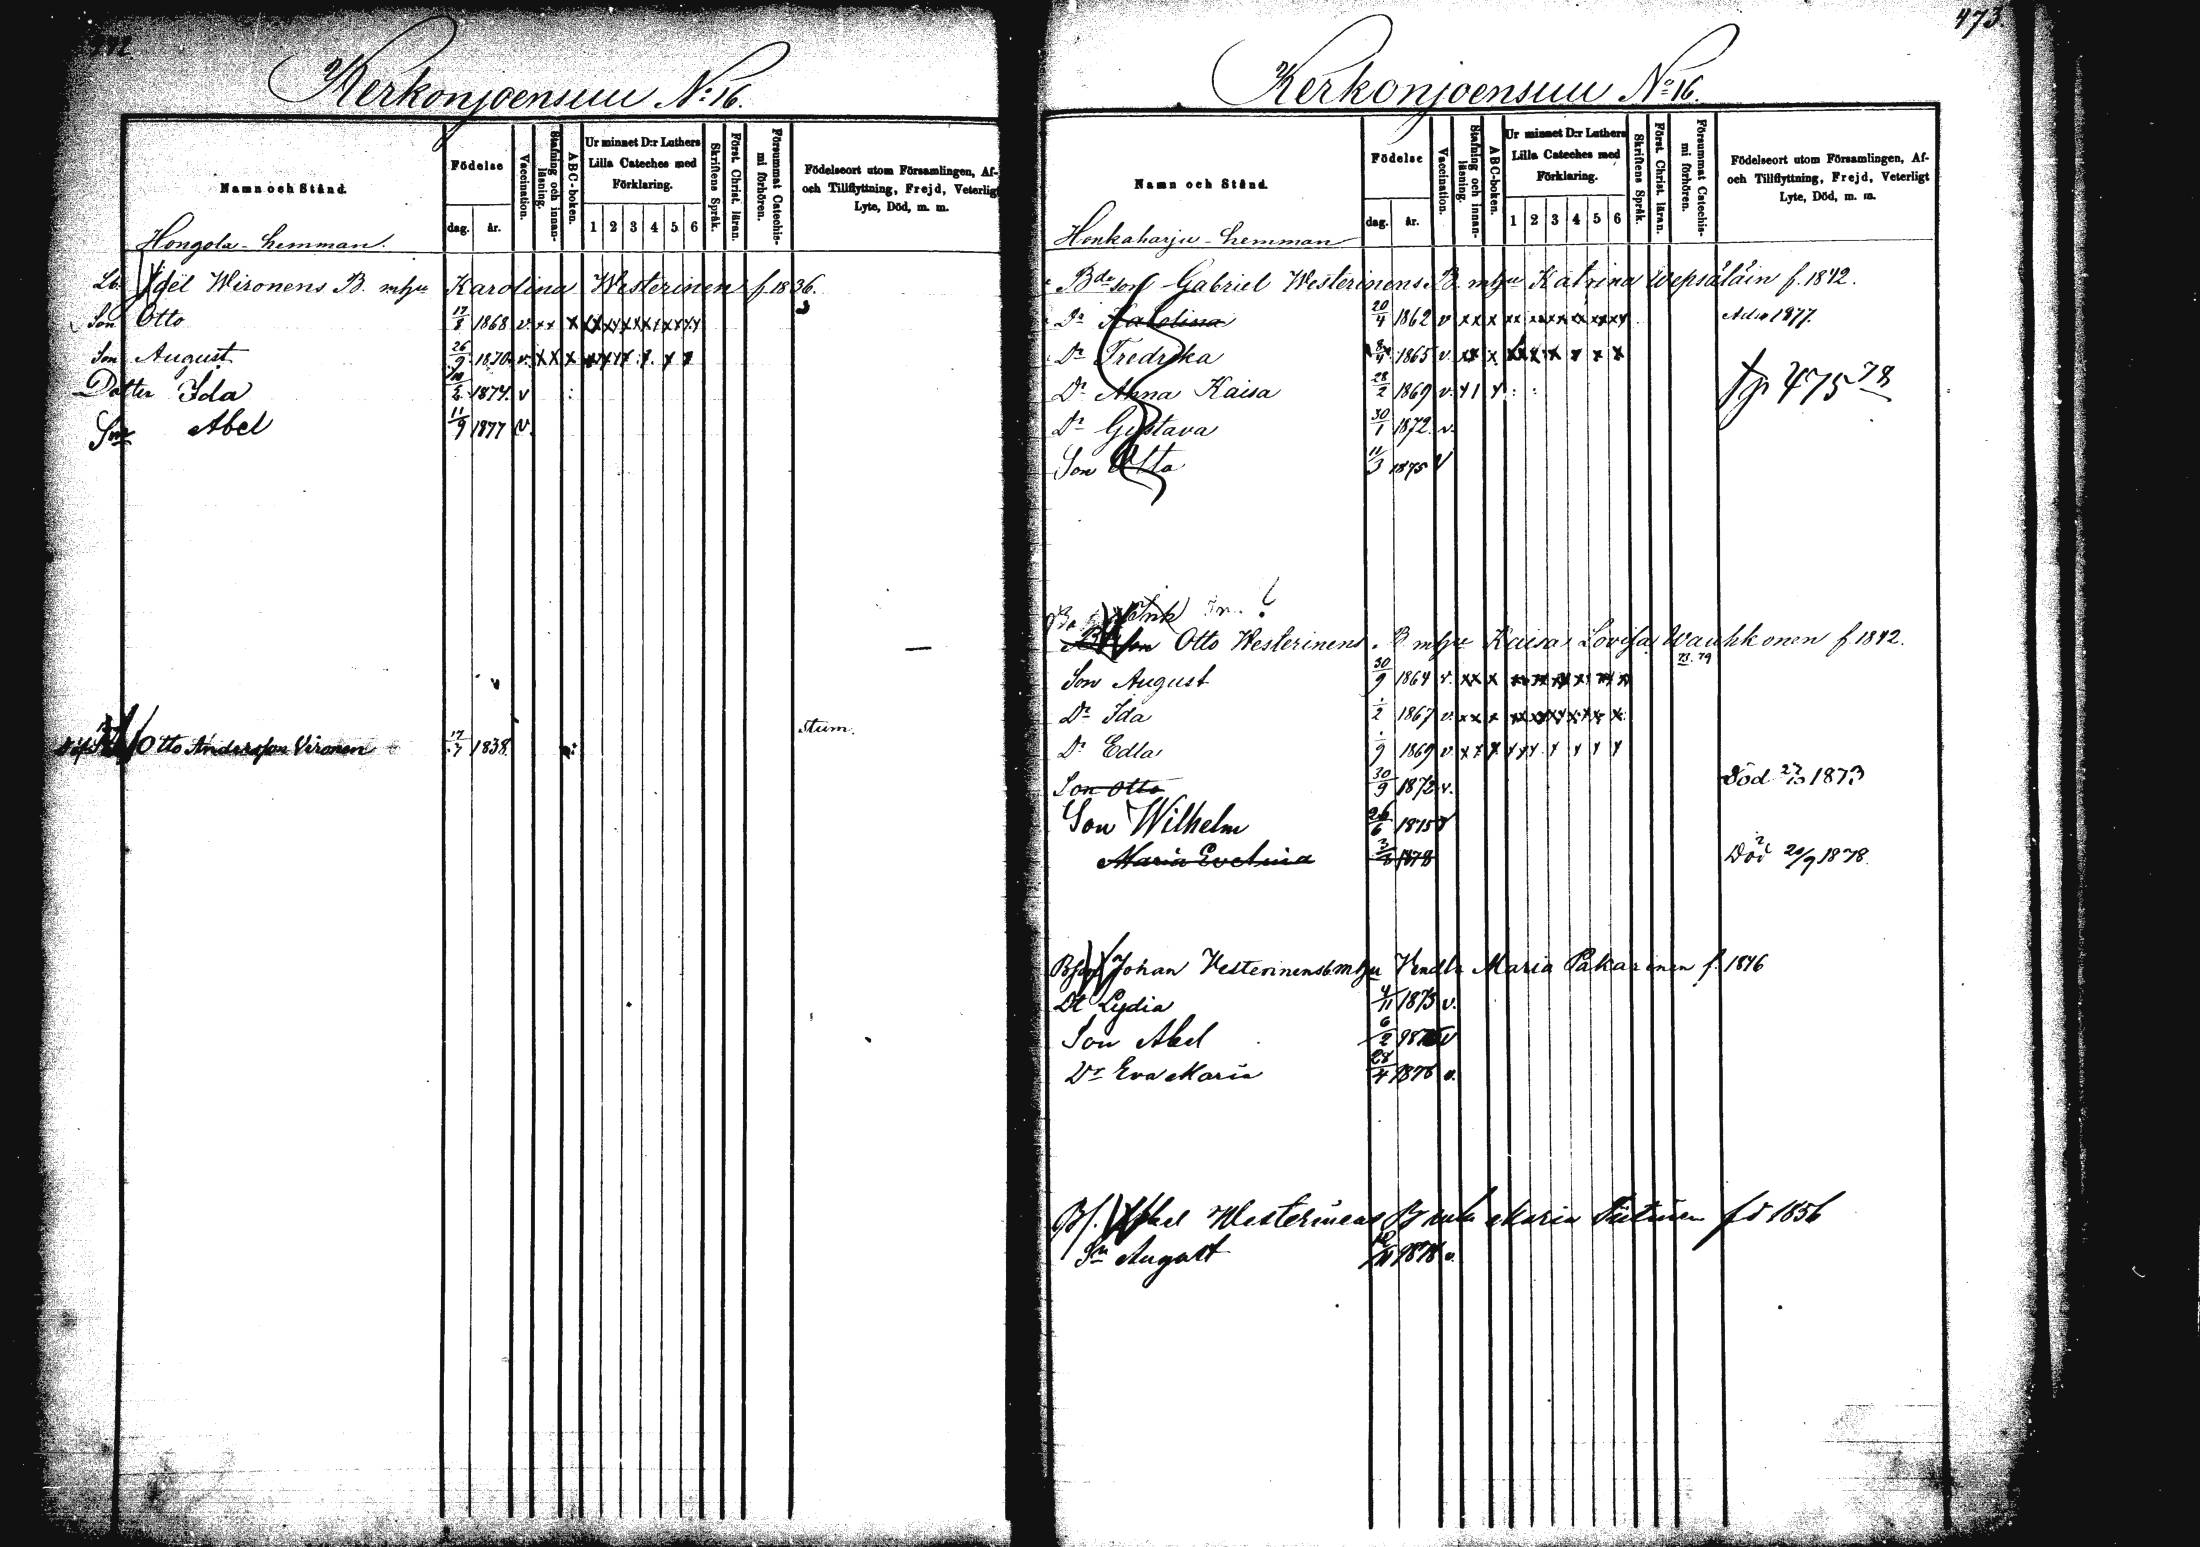 Kerkonjoensuu No: 16.
Namn och Stånd.
Födelse
dag.
år.
Vaccination.
Stafning och innan-
läsning.
ABC-boken.
Ur minnet D:r Luthers
Lilla Cateches med
Förklaring.
1 2 3 4 5 6
Skriftens Språk.
Först. Christ. läran.
Försummat Catechis-
mi förhören.
Födelseort utom Församlingen, Af-
och Tillflyttning, Frejd, Veterligt
Lyte, Död, m. m.
Hongola - hemman.
Wironens B. mhu Karolina Westerinen f. 1836.
Son Otto 17/8 1868 v. xx x xx xx xx xx xx xx
Son August 26/9 1870 v. x x x
Dotter Ida 1874. v
Son Abel 11/9 1877 v.
Otto Andersson Vironen 17/7 1838. stum.
473
Kerkonjoensuu No: 16.
Namn och Stånd.
Födelse
dag.
år.
Vaccination.
Stafning och innan-
läsning.
ABC-boken.
Ur minnet D:r Luthers
Lilla Cateches med
Förklaring.
1 2 3 4 5 6
Skriftens Språk.
Först. Christ. läran.
Försummat Catechis-
mi förhören.
Födelseort utom Församlingen, Af-
och Tillflyttning, Frejd, Veterligt
Lyte, Död, m. m.
Honkaharju - hemman
Bdr son Gabriel Westerinens B. mhu Katrina Wepsäläin f. 1842.
Dr Karolina 20/4 1862 v xx x 1877.
Dr Fredrika 1865 v. xx x
Dr Anna Kaisa 28/2 1869 v.
475 78
Dr Gustava 30/1 1872. v.
Son Otto 11/3 1875 v
Son Otto Westerinens B mhu Kaisa Lovisa Wauhkonen f 1842.
73. 79
Son August 30/9 1864 v. xx x
Dr Ida 1867 v. xx x
Dr Edla 1869 v. x x x
Son Otto 30/9 1872 v. Död 27/10 1873
Son Wilhelm 26/6 1875 v
Maria Evelina 1878 Död 20/9 1878.
Johan Vesterinens b mhu Vendla Maria Pakarinen f. 1846
Dt Lydia 4/11 1873 v.
Son Abel 6/2 v
Dr Eva Maria 28/4 1876 v.
Abel Westerinens B mhu Maria fd 1856
Sn August 1878 v.